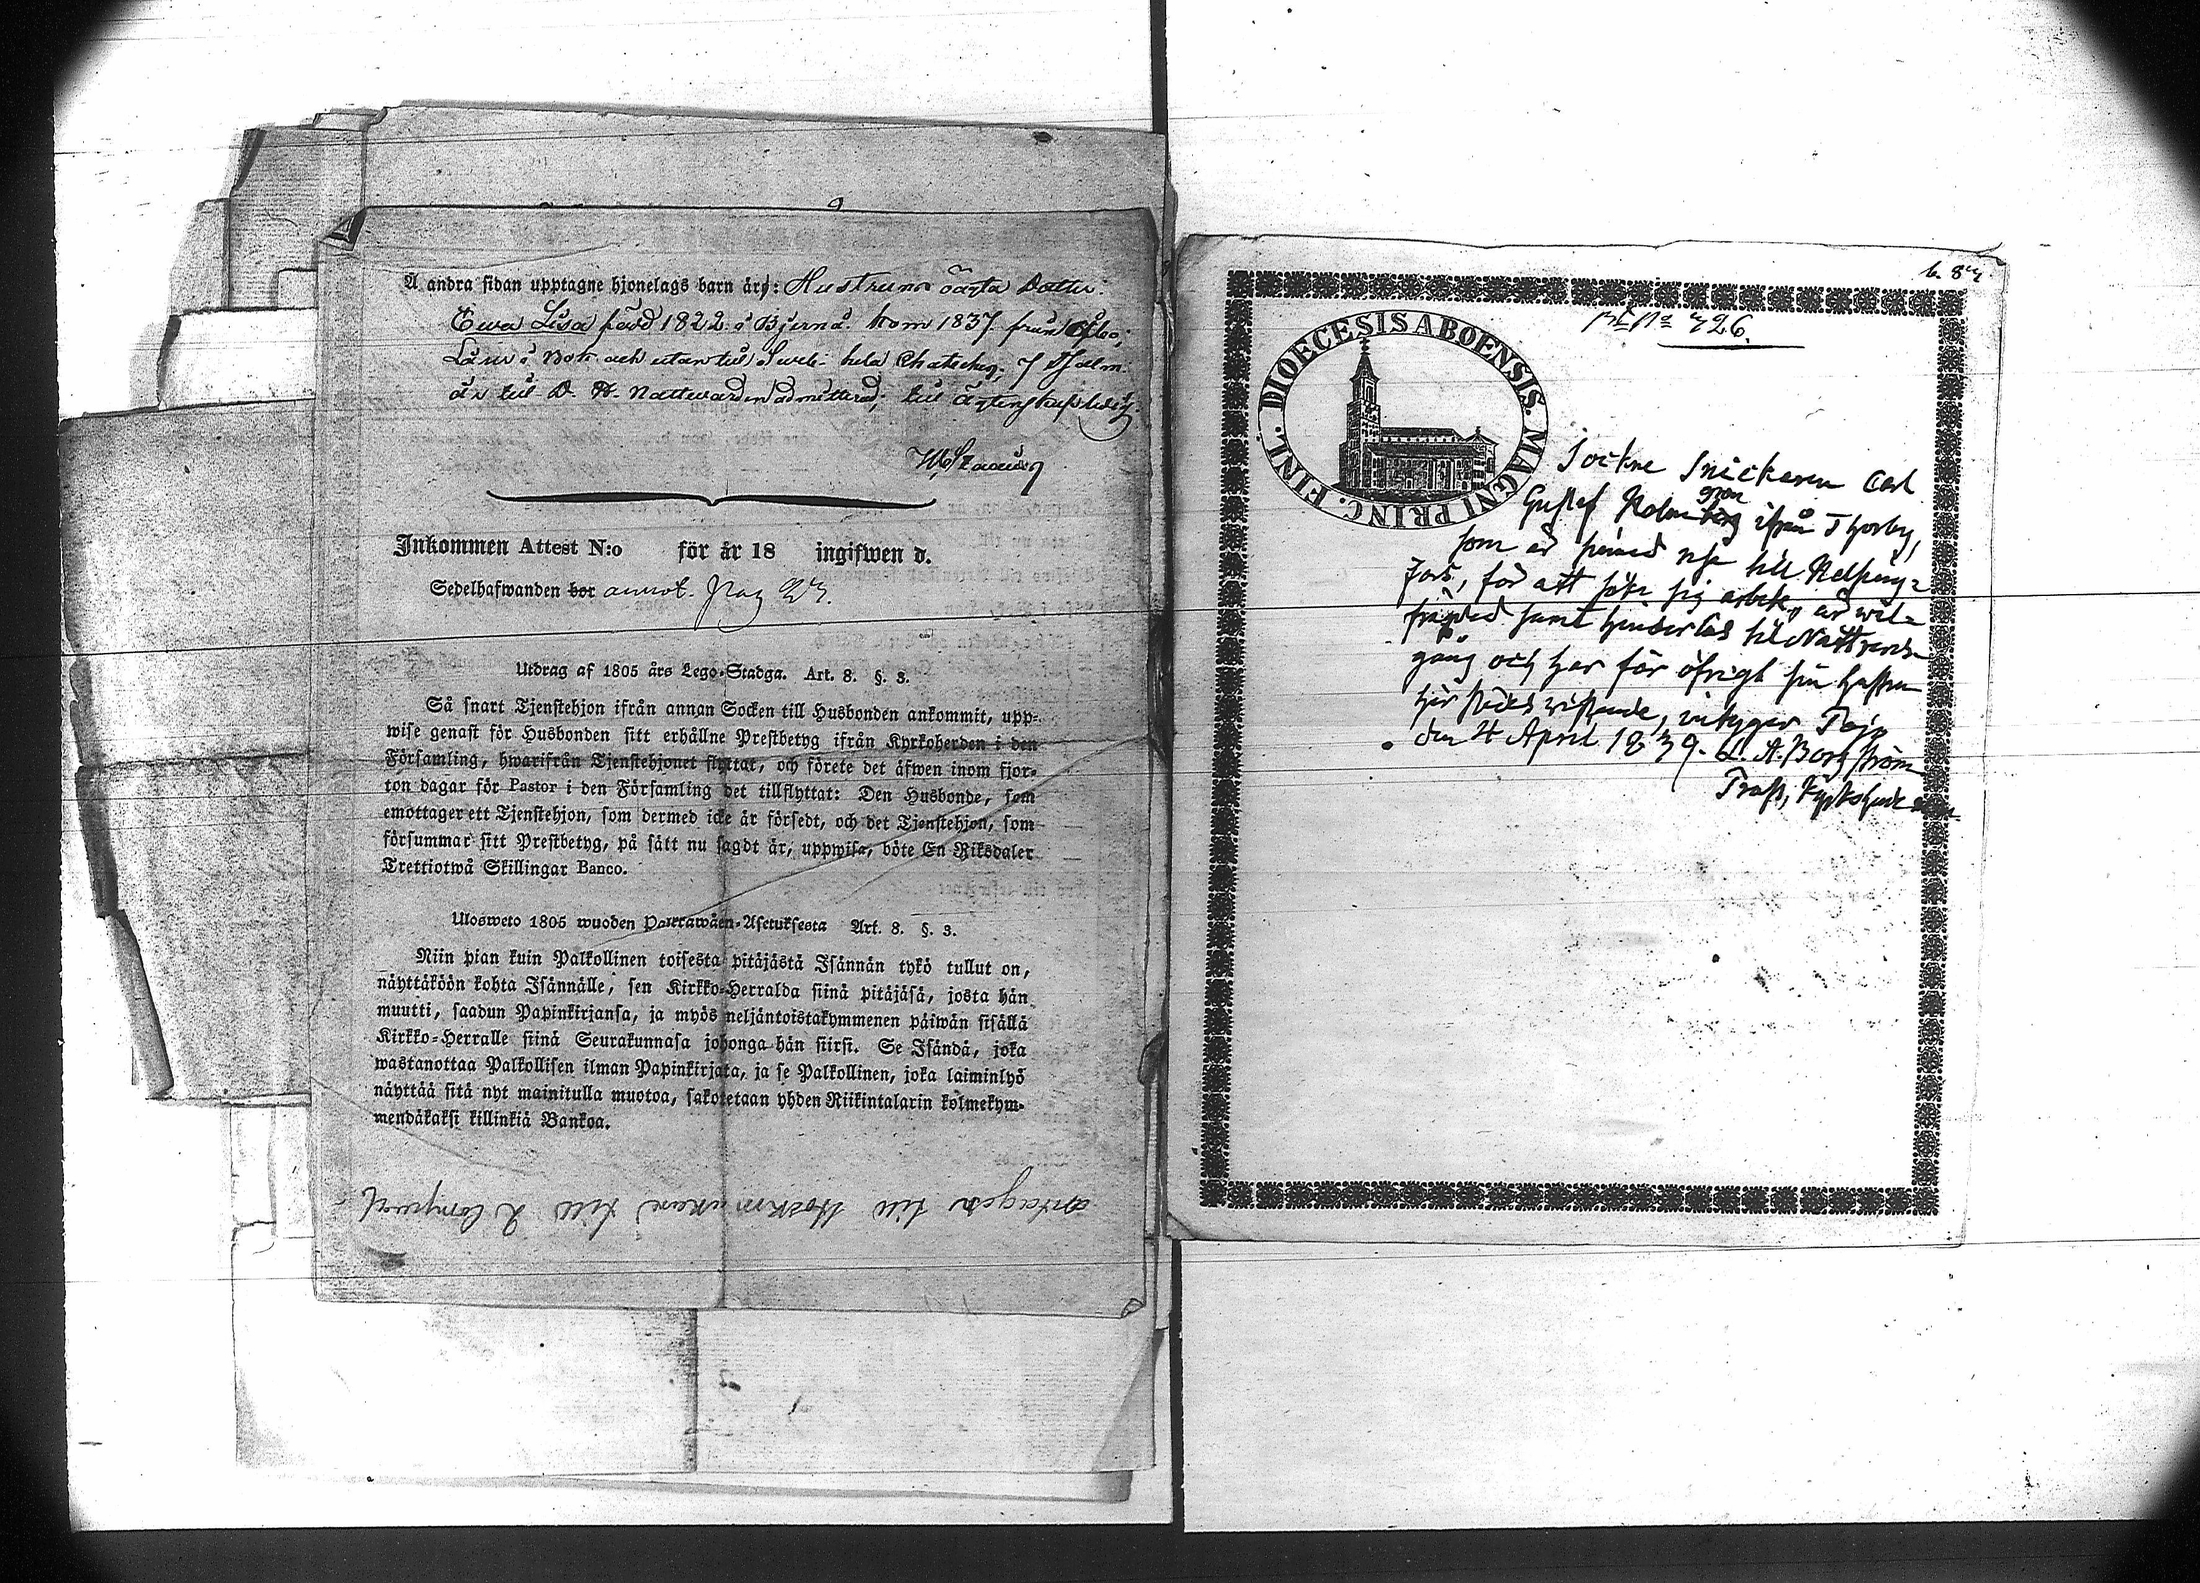 Å andra sidan upptagne hjonelags barn är: Hustruns öägta Dotter:
Ewa Lisa född 1822 i Bjernå. kom 1837 från Åbo;
Läser i Bok och utan till Svebi: hela Chateches; 7 Psalm:
är till D. H. Nattwarden admitterad; till ägtenskap ledig.
Inkommen Attest N:o för år 18 ingifwen d.
Sedelhafwanden bor annot. pag
Utdrag af 1805 års Lego-Stadga. Art. 8. §. 3.
Så snart Tjenstehjon ifrån annan Socken till Husbonden ankommit, upp-
wise genast för Husbonden sitt erhållne Prestbetyg ifrån Kyrkoherden i den
Församling, hwarifrån Tjenstehjonet flyttat, och förete det äfwen inom fjor-
ton dagar för Pastor i den Församling det tillflyttat: Den Husbonde, som
emottager ett Tjenstehjon, som dermed icke är försedt, och det Tjenstehjon, som
försummar sitt Prestbetyg, på sätt nu sagdt är, uppwisa, böte En Riksdaler
Trettiotwå Skillingar Banco.
Ulosweto 1805 wuoden Palkkawäen-Asetuksesta Art. 8. §. 3.
Niin pian kuin Palkollinen toisesta pitäjästä Isännän tykö tullut on,
näyttäköön kohta Isännälle, sen Kirkko-Herralda siinä pitäjäsä, josta hän
muutti, saadun Papinkirjansa, ja myös neljäntoistakymmenen päiwän sisällä
Kirkko-Herralle siinä Seurakunnasa johonga hän siirsi. Se Isändä, joka
wastanottaa Palkollisen ilman Papinkirjata, ja se Palkollinen, joka laiminlyö
näyttää sitä nyt mainitulla muotoa, sakotetaan yhden Riikintalarin kolmekym-
mendäkaksi killinkiä Bankoa.
antagen till till
DIOECESIS ABOENSIS. MAGNI PRINC. FINL.
426.
Sockne Snickaren Carl
gren
Gustaf Holmberg ifrån Thorby,
som är sinnad resa till Helsing-
fors, för att söka sig arbete, är wäl-
frägdad samt hinderlös till Nattvards-
gång och har för öfrigt sin hustru
här städes wistande, intygar Pojo
den 4 April 1839. L. A. Borgström
Prost, Kyrkoherde